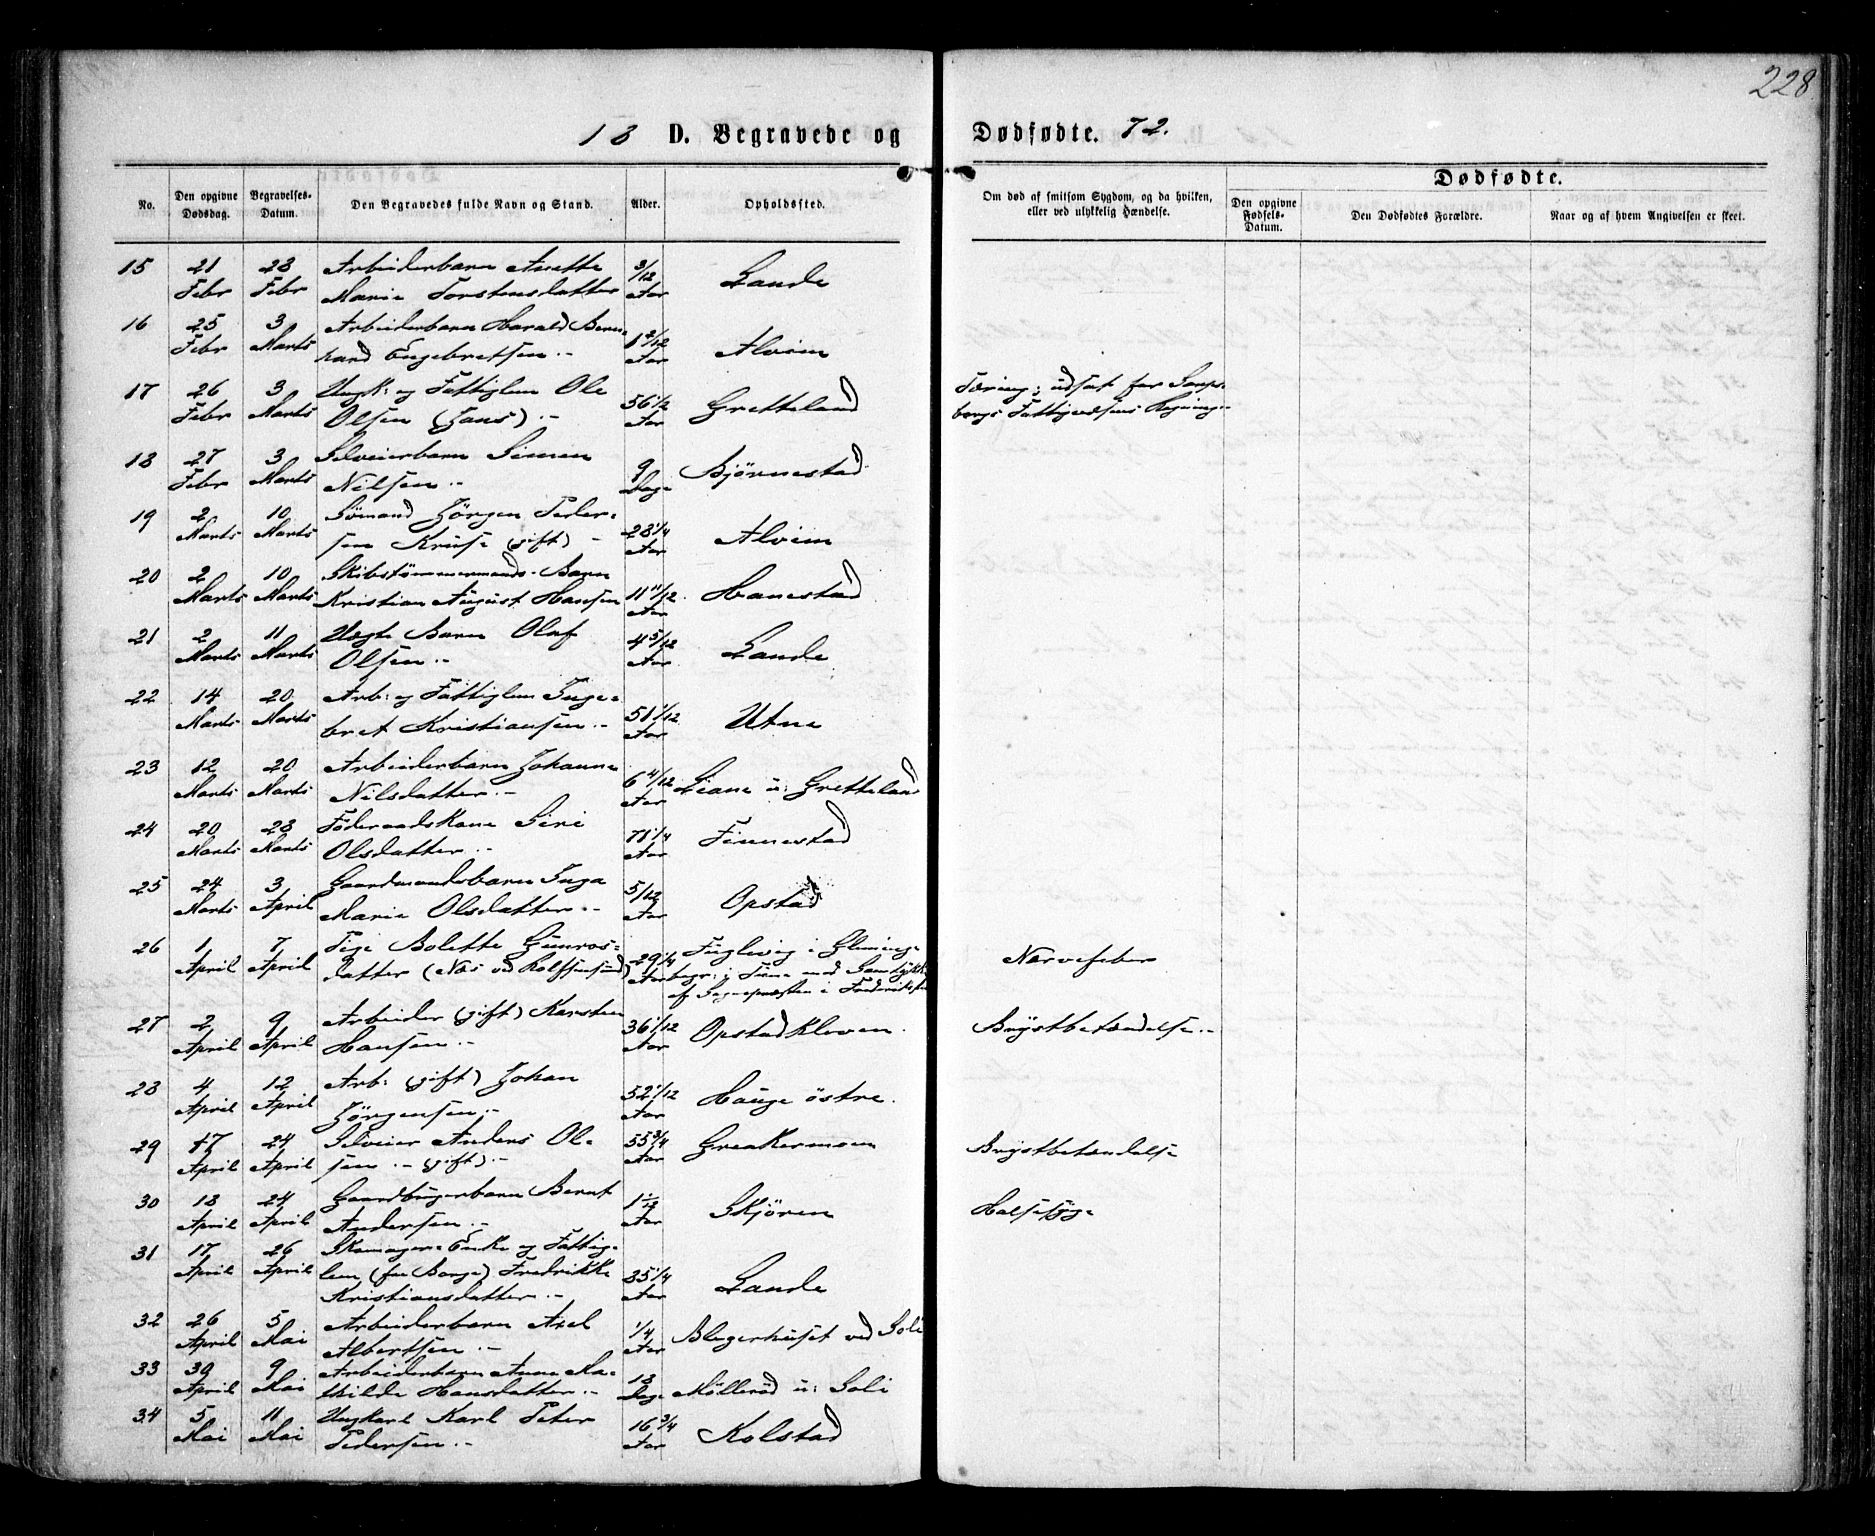 228.
18 D. Begravede og Dødfødte. 72.
No. Den opgivne Dødsdag. Begravelses-Datum. Den Begravedes fulde Navn og Stand. Alder. Opholdssted. Om død af smitsom Sygdom, og da hvilken, eller ved ulykkelig Hændelse. Dødfødte. Den opgivne Fødsels-Datum. Den Dødfødtes Forældre. Naar og af hvem Angivelsen er skeet.
15 21 28 Arbeiderbarn Anette 3/12
Febr Febr Marie Torstensdatter Aar Lande
16 25 3 Arbeiderbarn Harald Bern- 1 2/12
Febr Marts hard Engebretsen .- Aar Alvim
17 26 3 Ungk: og Fattiglem Ole 56 1/2 Tæring; udsat for Sarps-
Febr Marts Olsen (Hans) .- Aar Gretteland borgs Fattigvæsens Regning.
18 27 3 Selveierbarn Simen 9
Febr Marts Nilsen .- Dage Bjørnestad
19 2 10 Sømand Jörgen Peder- 28 1/4
Marts Marts sen Kruse (gift) - Aar Alvim
20 2 10 Skibstømmermands-Barn
Marts Marts Kristian August Hansen 11 11/12 Aar Hanestad
21 2 11 Uægte Barn Olaf 4 5/12
Marts Marts Olsen .- Aar Lande
22 14 20 Arb: og Fattiglem Inge-
Marts Marts bret Kristiansen .- 51 1/12 Aar Utne
23 12 20 Arbeiderbarn Johanne 6 4/12
Marts Marts Nilsdatter .- Aar Liane u: Gretteland
24 20 28 Føderaadskone Siri 71 1/4
Marts Marts Olsdatter .- Aar Finnestad
25 24 3 Gaardmandsbarn Inga 5/12
Marts April Marie Olsdatter .- Aar Opstad
26 1 7 Pige Bolette Gunros- 29 1/4 Fuglevig i Glemminge Nervefeber
April April datter (Næs ved Rolfsøsund) Aar begr: i Tune med Samtykke
af Sognepræsten i Fredrikstad
27 2 9 Arbeider (gift) Karsten 36 1/12 Opstadkleven. Brystbetændelse .-
April April Hansen .- Aar
28 4 12 Arb: (gift) Johan 52 1/12 Hauge östre.
April April Jörgensen .- Aar
29 17 24 Selveier Anders Ol- 55 3/4 Greakermoen Brystbetændelse
April April sen .- (gift) .- Aar
30 18 24 Gaardbrugerbarn Bernt 1 1/12 Skjören Halsesyge
April April Andersen .- Aar
31 17 26 Skomager-Enke og Fattig-
April April lem (fra Borge) Fredrikke 85 1/4
Kristiansdatter .- Aar Lande
32 26 5 Arbeiderbarn Axel 1/4
April Mai Albertsen .- Aar Blegerhuset ved Soli
33 30 9 Arbeiderbarn Anne Ma- 18
April Mai thilde Hansdatter .- Dage Möllerød u: Soli
34 5 11 Ungkarl Karl Peter 16 3/4
Mai Mai Pedersen .- Aar Kolstad